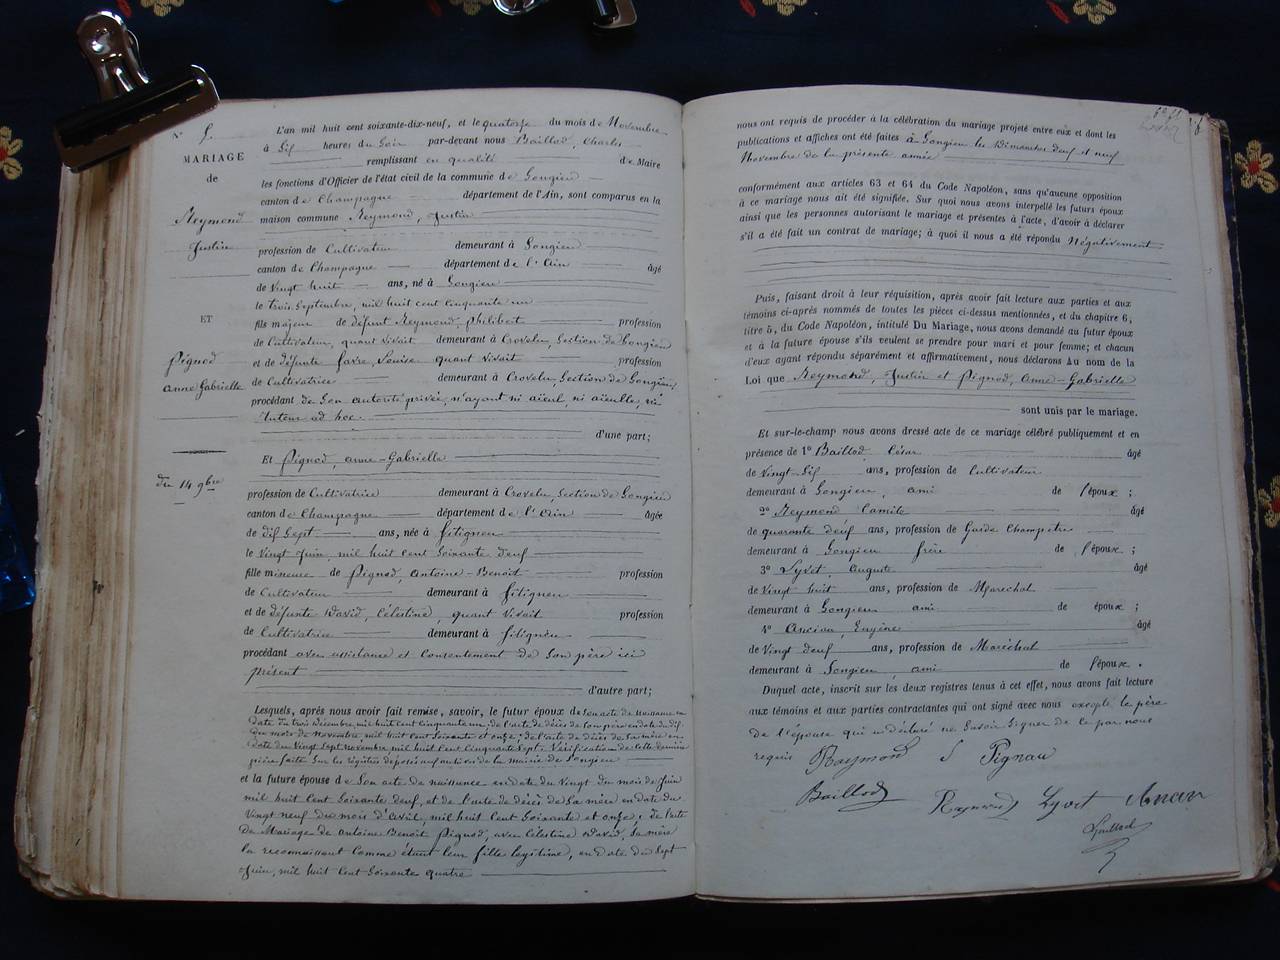 N° 5.
MARIAGE
de
Reymond
Justin
ET
Pignod
anne Gabrielle
du 14 9bre
L'an mil huit cent soixante-dix-neuf, et le quatorze du mois de Novembre
à Six heures du Soir par-devant nous Baillod, Charles
remplissant en qualité de Maire
les fonctions d'Officier de l'état civil de la commune de Songieu
canton de Champagne département de l'Ain, sont comparus en la
maison commune Reymond, Justin
profession de Cultivateur demeurant à Songieu
canton de Champagne département de l'Ain âgé
de Vingt huit ans, né à Songieu
le trois Septembre, mil huit cent cinquante un
fils majeur de défunt Reymond, Philibert profession
de Cultivateur, quant vivait demeurant à Crovelu, Section de Songieu
et de défunte favre, Louise quant vivait profession
de Cultivatrice demeurant à Crovelu, Section de Songieu,
procédant de Son autorité privée, n'ayant ni aïeul, ni aïeulle, ni
Tuteur ad hoc.
d'une part;
Et Pignod, anne-Gabrielle
profession de Cultivatrice demeurant à Crovelu, Section de Songieu
canton de Champagne département de l'Ain âgée
de dix Sept ans, née à fitignieu
le Vingt Juin, mil huit cent Soixante deux
fille mineure de Pignod, Antoine-Benoit profession
de Cultivateur demeurant à fitignieu
et de défunte David, Célestine, quant Vivait profession
de Cultivatrice demeurant à fitignieu
procédant avec assistance et consentement de Son père ici
présent
d'autre part;
Lesquels, après nous avoir fait remise, savoir, le futur époux de Son acte de naissance en
date du trois Décembre, mil huit cent cinquante un, de l'acte de décès de Son père en date du dix
du mois de Novembre, mil huit cent Soixante et onze; de l'acte de décès de Sa mère en
date du Vingt Sept Novembre, mil huit cent Cinquante Sept. Vérification de cette dernière
pièce faite Sur les régistres déposés aux archives de la mairie de Songieu
et la future épouse de Son acte de naissance en date du Vingt du mois de Juin
mil huit cent Soixante deux, et de l'acte de décès de Sa mère en date du
Vingt neuf du mois d'avril, mil huit cent Soixante et onze; de l'acte
de Mariage de antoine Benoit Pignod, avec Célestine David, Sa mère
la reconnaissant comme étant leur fille légitime, en date du Sept
Juin, mil huit cent Soixante quatre
nous ont requis de procéder à la célébration du mariage projeté entre eux et dont les
publications et affiches ont été faites à Songieu les Dimanches deux et neuf
Novembre de la présente année
conformément aux articles 63 et 64 du Code Napoléon, sans qu'aucune opposition
à ce mariage nous ait été signifiée. Sur quoi nous avons interpellé les futurs époux
ainsi que les personnes autorisant le mariage et présentes à l'acte, d'avoir à déclarer
s'il a été fait un contrat de mariage; à quoi il nous a été répondu Négativement
Puis, faisant droit à leur réquisition, après avoir fait lecture aux parties et aux
témoins ci-après nommés de toutes les pièces ci-dessus mentionnées, et du chapitre 6,
titre 5, du Code Napoléon, intitulé Du Mariage, nous avons demandé au futur époux
et à la future épouse s'ils veulent se prendre pour mari et pour femme; et chacun
d'eux ayant répondu séparément et affirmativement, nous déclarons Au nom de la
Loi que Reymond, Justin et Pignod, anne-Gabrielle
sont unis par le mariage.
Et sur-le-champ nous avons dressé acte de ce mariage célébré publiquement et en
présence de 1° Baillod César âgé
de Vingt-Six ans, profession de Cultivateur
demeurant à Songieu, ami de l'époux;
2° Reymond Camile âgé
de quarante deux ans, profession de Garde Champetre
demeurant à Songieu frère de l'époux;
3° Lyvet, Auguste âgé
de Vingt huit ans, profession de Maréchal
demeurant à Songieu ami de époux;
4° Ancian, Eugène âgé
de Vingt deux ans, profession de Maréchal
demeurant à Songieu, ami de l'époux.
Duquel acte, inscrit sur les deux registres tenus à cet effet, nous avons fait lecture
aux témoins et aux parties contractantes qui ont signé avec nous excepté le père
de l'épouse qui a déclaré ne Savoir Signer de ce par nous
requis Raymond J Pignau
Baillod Raymond Lyvet
Baillod